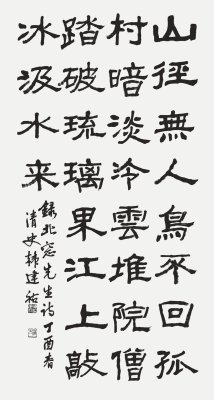 山徑無人鳥不回孤
村暗淡冷雲堆院僧
踏破琉璃界江上敲
冰汲水来
錄北窓先生詩丁酉春
清史韓建